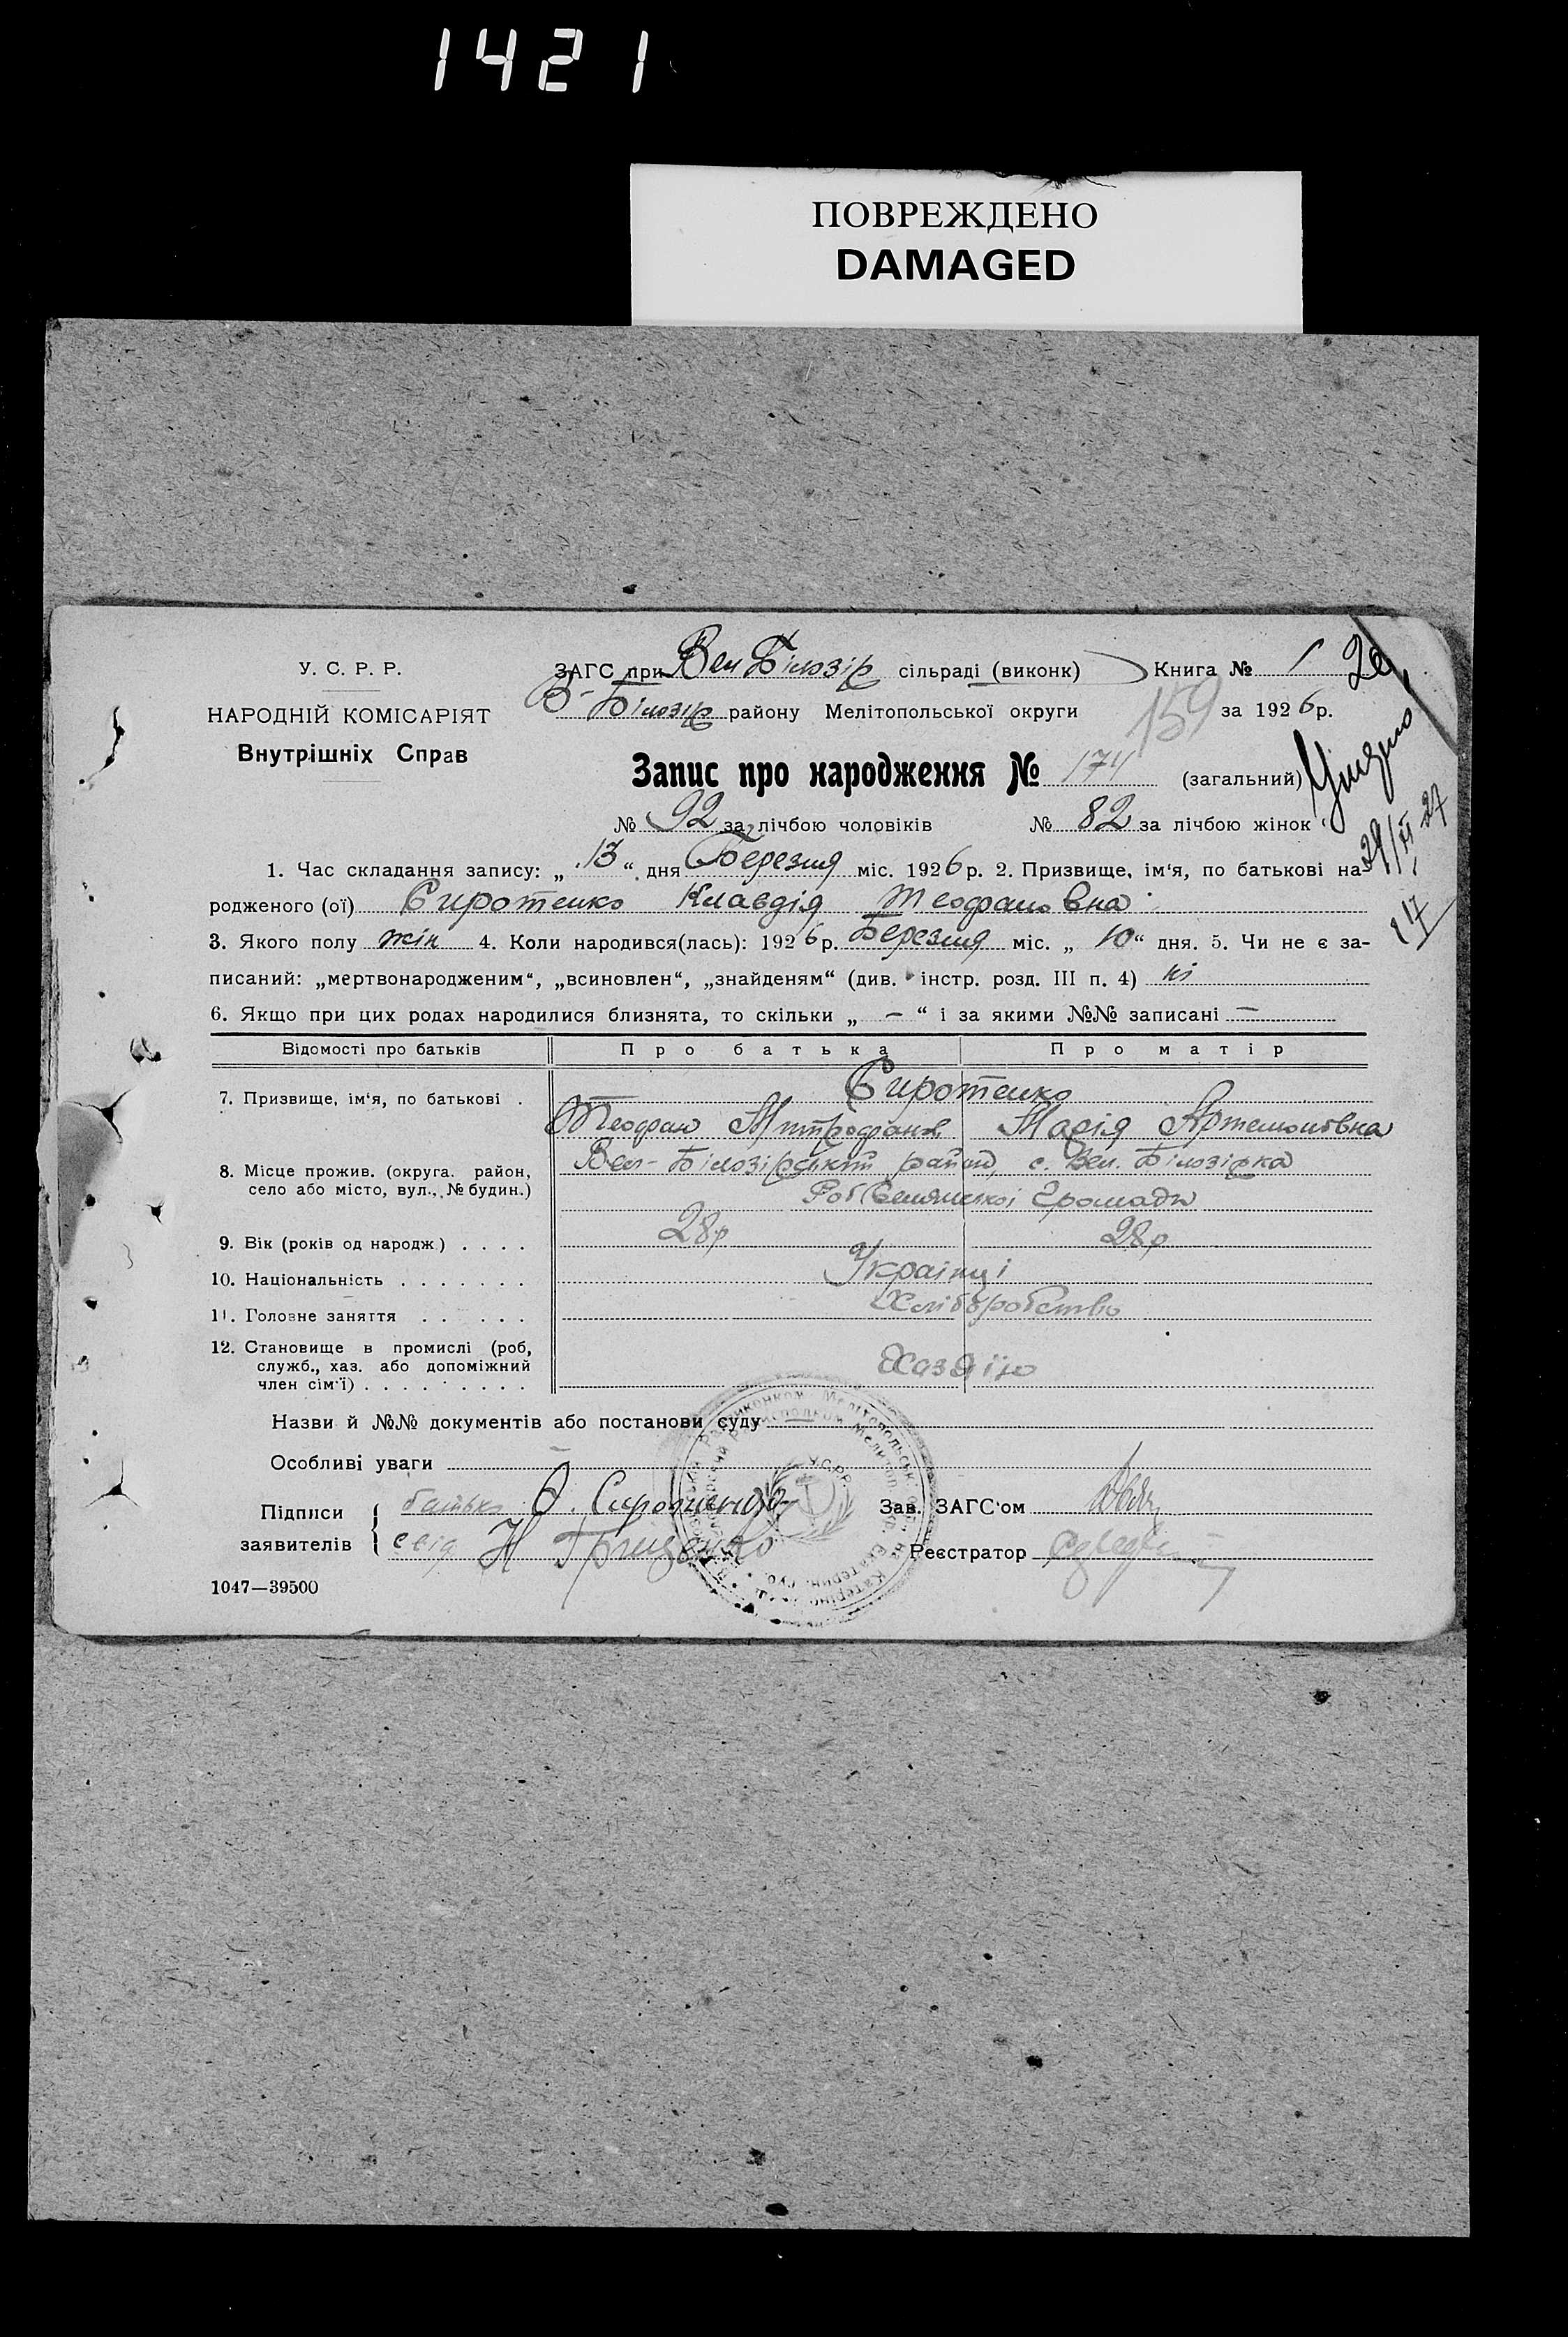 1421
ПОВРЕЖДЕНО
DAMAGED
У. С. Р. Р.
НАРОДНІЙ КОМІСАРІЯТ
Внутрішніх Справ
ЗАГС при Вел Білозір сільраді (виконк) Книга № 1 20
В- Білозір району Мелітопольської округи 159 за 1926 р.
Запис про народження № 174 (загальний)
№ 92 за лічбою чоловіків № 82 за лічбою жінок
29/XI 27
117
1. Час складання запису: „13“ дня Березня міс. 1926 р. 2. Призвище, ім'я, по батькові на-
родженого (ої) Сиротенко Клавдія Теофановна
3. Якого полу жін 4. Коли народився(лась): 1926 р. Березня міс. „10“ дня. 5. Чи не є за-
писаний: „мертвонародженим“, „всиновлен“, „знайденям“ (див. інстр. розд. III п. 4) ні
6. Якщо при цих родах народилися близнята, то скільки „ — “ і за якими №№ записані —
Відомості про батьків Про батька Про матір
7. Призвище, ім'я, по батькові . Сиротенко
Теофан Митрофанов Марія Артемоновна
8. Місце прожив. (округа. район, село або місто, вул., № будин.) Вел-Білозірський район, с. Вел. Білозірка
Громади
9. Вік (років од народж) . . . . 28р 28р
10. Національність . . . . . . . Українці
11. Головне заняття . . . . . . Хліборобство
12. Становище в промислі (роб,
служб., хаз. або допоміжний
член сім'ї) . . . . . . . . . Хазяїн
Назви й №№ документів або постанови суду
Особливі уваги —
Підписи
заявителів
батько О. Сиротенко
свід Н Грищенко
Зав. ЗАГС'ом
Реєстратор
У.С.Р.Р.
1047—39500